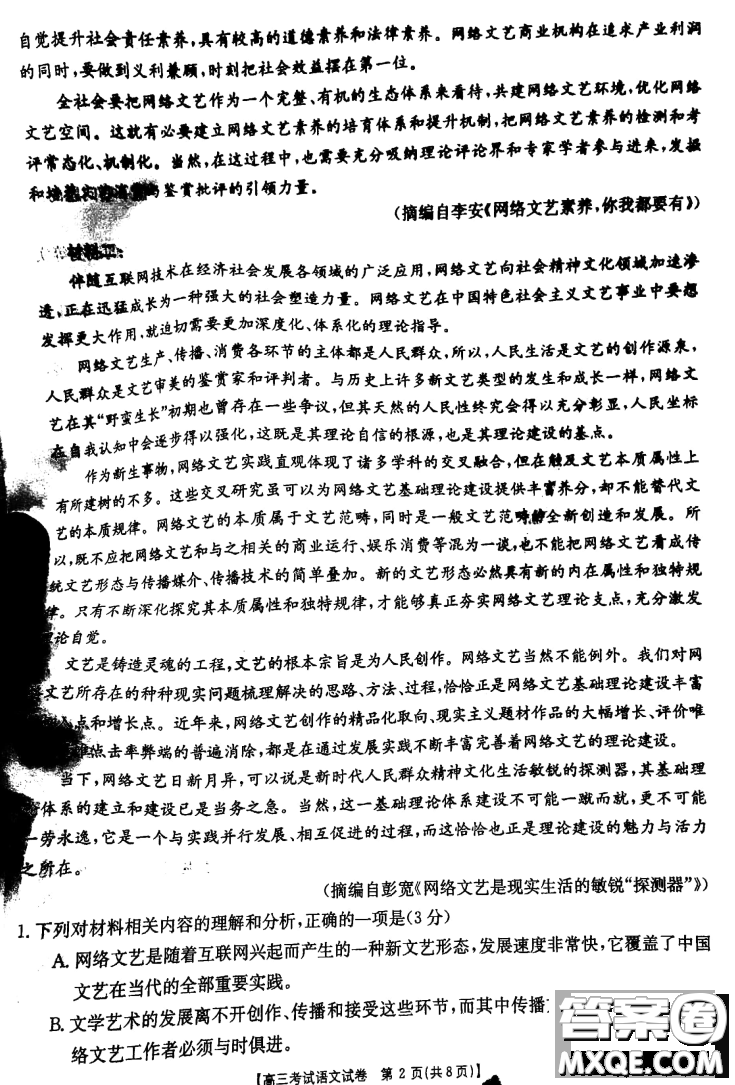 自觉提升社会责任素养,具有较高的道德素养和法律素养。网络文艺商业机构在追求产业利润
的同时,要做到义利兼顾,时刻把社会效益摆在第一位。
全社会要把网络文艺作为一个完整、有机的生态体系来看待,共建网络文艺环境,优化网络
文艺空间。这就有必要建立网络文艺素养的培育体系和提升机制,把网络文艺素养的检测和考
评常态化、机制化。当然,在这过程中,也需要充分吸纳理论评论界和专家学者参与进来,发掘
和 鉴赏批评的引领力量。
(摘编自李安《网络文艺素养,你我都要有》)
材料二:
伴随互联网技术在经济社会发展各领域的广泛应用,网络文艺向社会精神文化领域加速渗
透,正在迅猛成长为一种强大的社会塑造力量。网络文艺在中国特色社会主义文艺事业中要想
发挥更大作用,就迫切需要更加深度化、体系化的理论指导。
网络文艺生产、传播、消费各环节的主体都是人民群众,所以,人民生活是文艺的创作源泉,
人民群众是文艺审美的鉴赏家和评判者。与历史上许多新文艺类型的发生和成长一样,网络文
艺在其“野蛮生长”初期也曾存在一些争议,但其天然的人民性终究会得以充分彰显,人民坐标
在自我认知中会逐步得以强化,这既是其理论自信的根源,也是其理论建设的基点。
作为新生事物,网络文艺实践直观体现了诸多学科的交叉融合,但在触及文艺本质属性上
有所建树的不多。这些交叉研究虽可以为网络文艺基础理论建设提供丰富养分,却不能替代文
艺的本质规律。网络文艺的本质属于文艺范畴,同时是一般文艺范畴的全新创造和发展。所
以,既不应把网络文艺和与之相关的商业运行、娱乐消费等混为一谈,也不能把网络文艺看成传
统文艺形态与传播媒介、传播技术的简单叠加。新的文艺形态必然具有新的内在属性和独特规
律。只有不断深化探究其本质属性和独特规律,才能够真正夯实网络文艺理论支点,充分激发
论自觉。
文艺是铸造灵魂的工程,文艺的根本宗旨是为人民创作。网络文艺当然不能例外。我们对网
文艺所存在的种种现实问题梳理解决的思路、方法、过程,恰恰正是网络文艺基础理论建设丰富
点和增长点。近年来,网络文艺创作的精品化取向、现实主义题材作品的大幅增长、评价唯
点击率弊端的普遍消除,都是在通过发展实践不断丰富完善着网络文艺的理论建设。
当下,网络文艺日新月异,可以说是新时代人民群众精神文化生活敏锐的探测器,其基础理
体系的建立和建设已是当务之急。当然,这一基础理论体系建设不可能一蹴而就,更不可能
一劳永逸,它是一个与实践并行发展、相互促进的过程,而这恰恰也正是理论建设的魅力与活力
之所在。
(摘编自彭宽《网络文艺是现实生活的敏锐“探测器”》)
1. 下列对材料相关内容的理解和分析,正确的一项是(3分)
A. 网络文艺是随着互联网兴起而产生的一种新文艺形态,发展速度非常快,它覆盖了中国
文艺在当代的全部重要实践。
B. 文学艺术的发展离不开创作、传播和接受这些环节,而其中传播
络文艺工作者必须与时俱进。
【高三考试语文试卷 第2页(共8页)】
答案圈
MXQE.COM